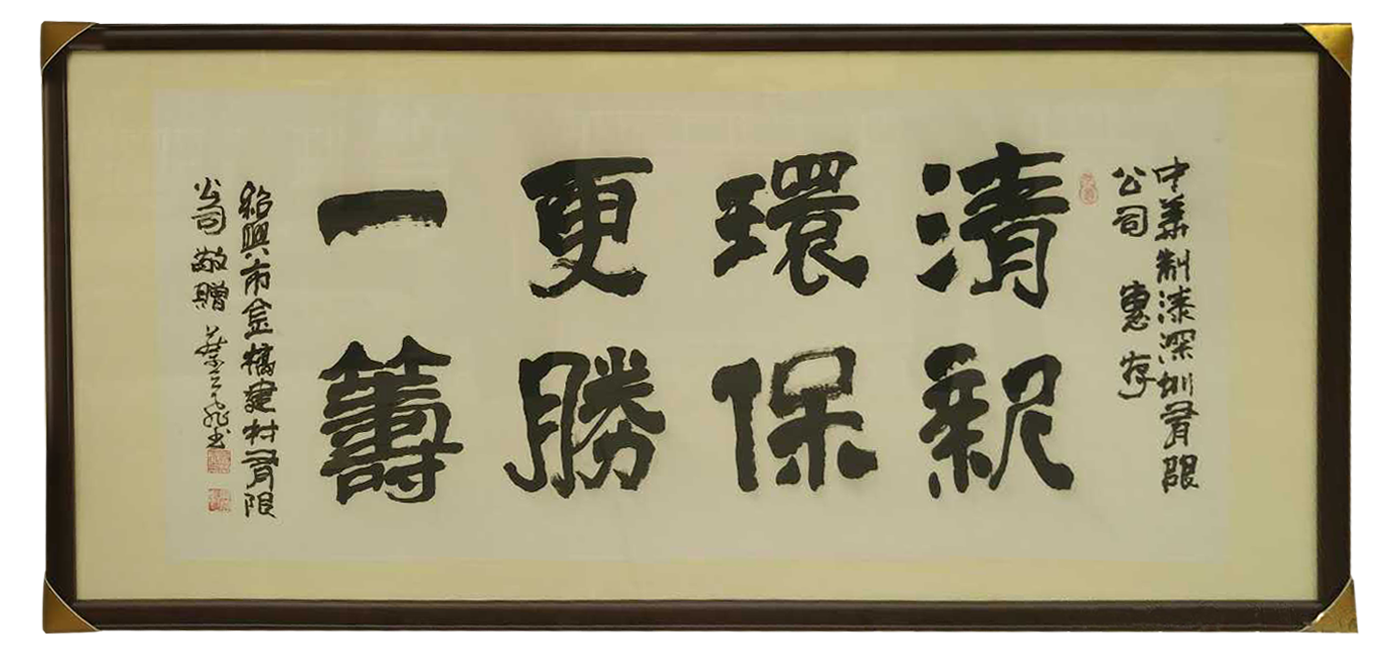 中華制漆深圳有限
公司 惠存
清
環保
更勝
一籌
紹興市金橋建材有限
公司 敬贈